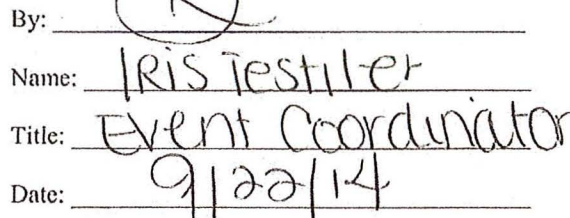 By:
Name: IRIS Testiler
Title: Event Coordinator
Date: 9/22/14